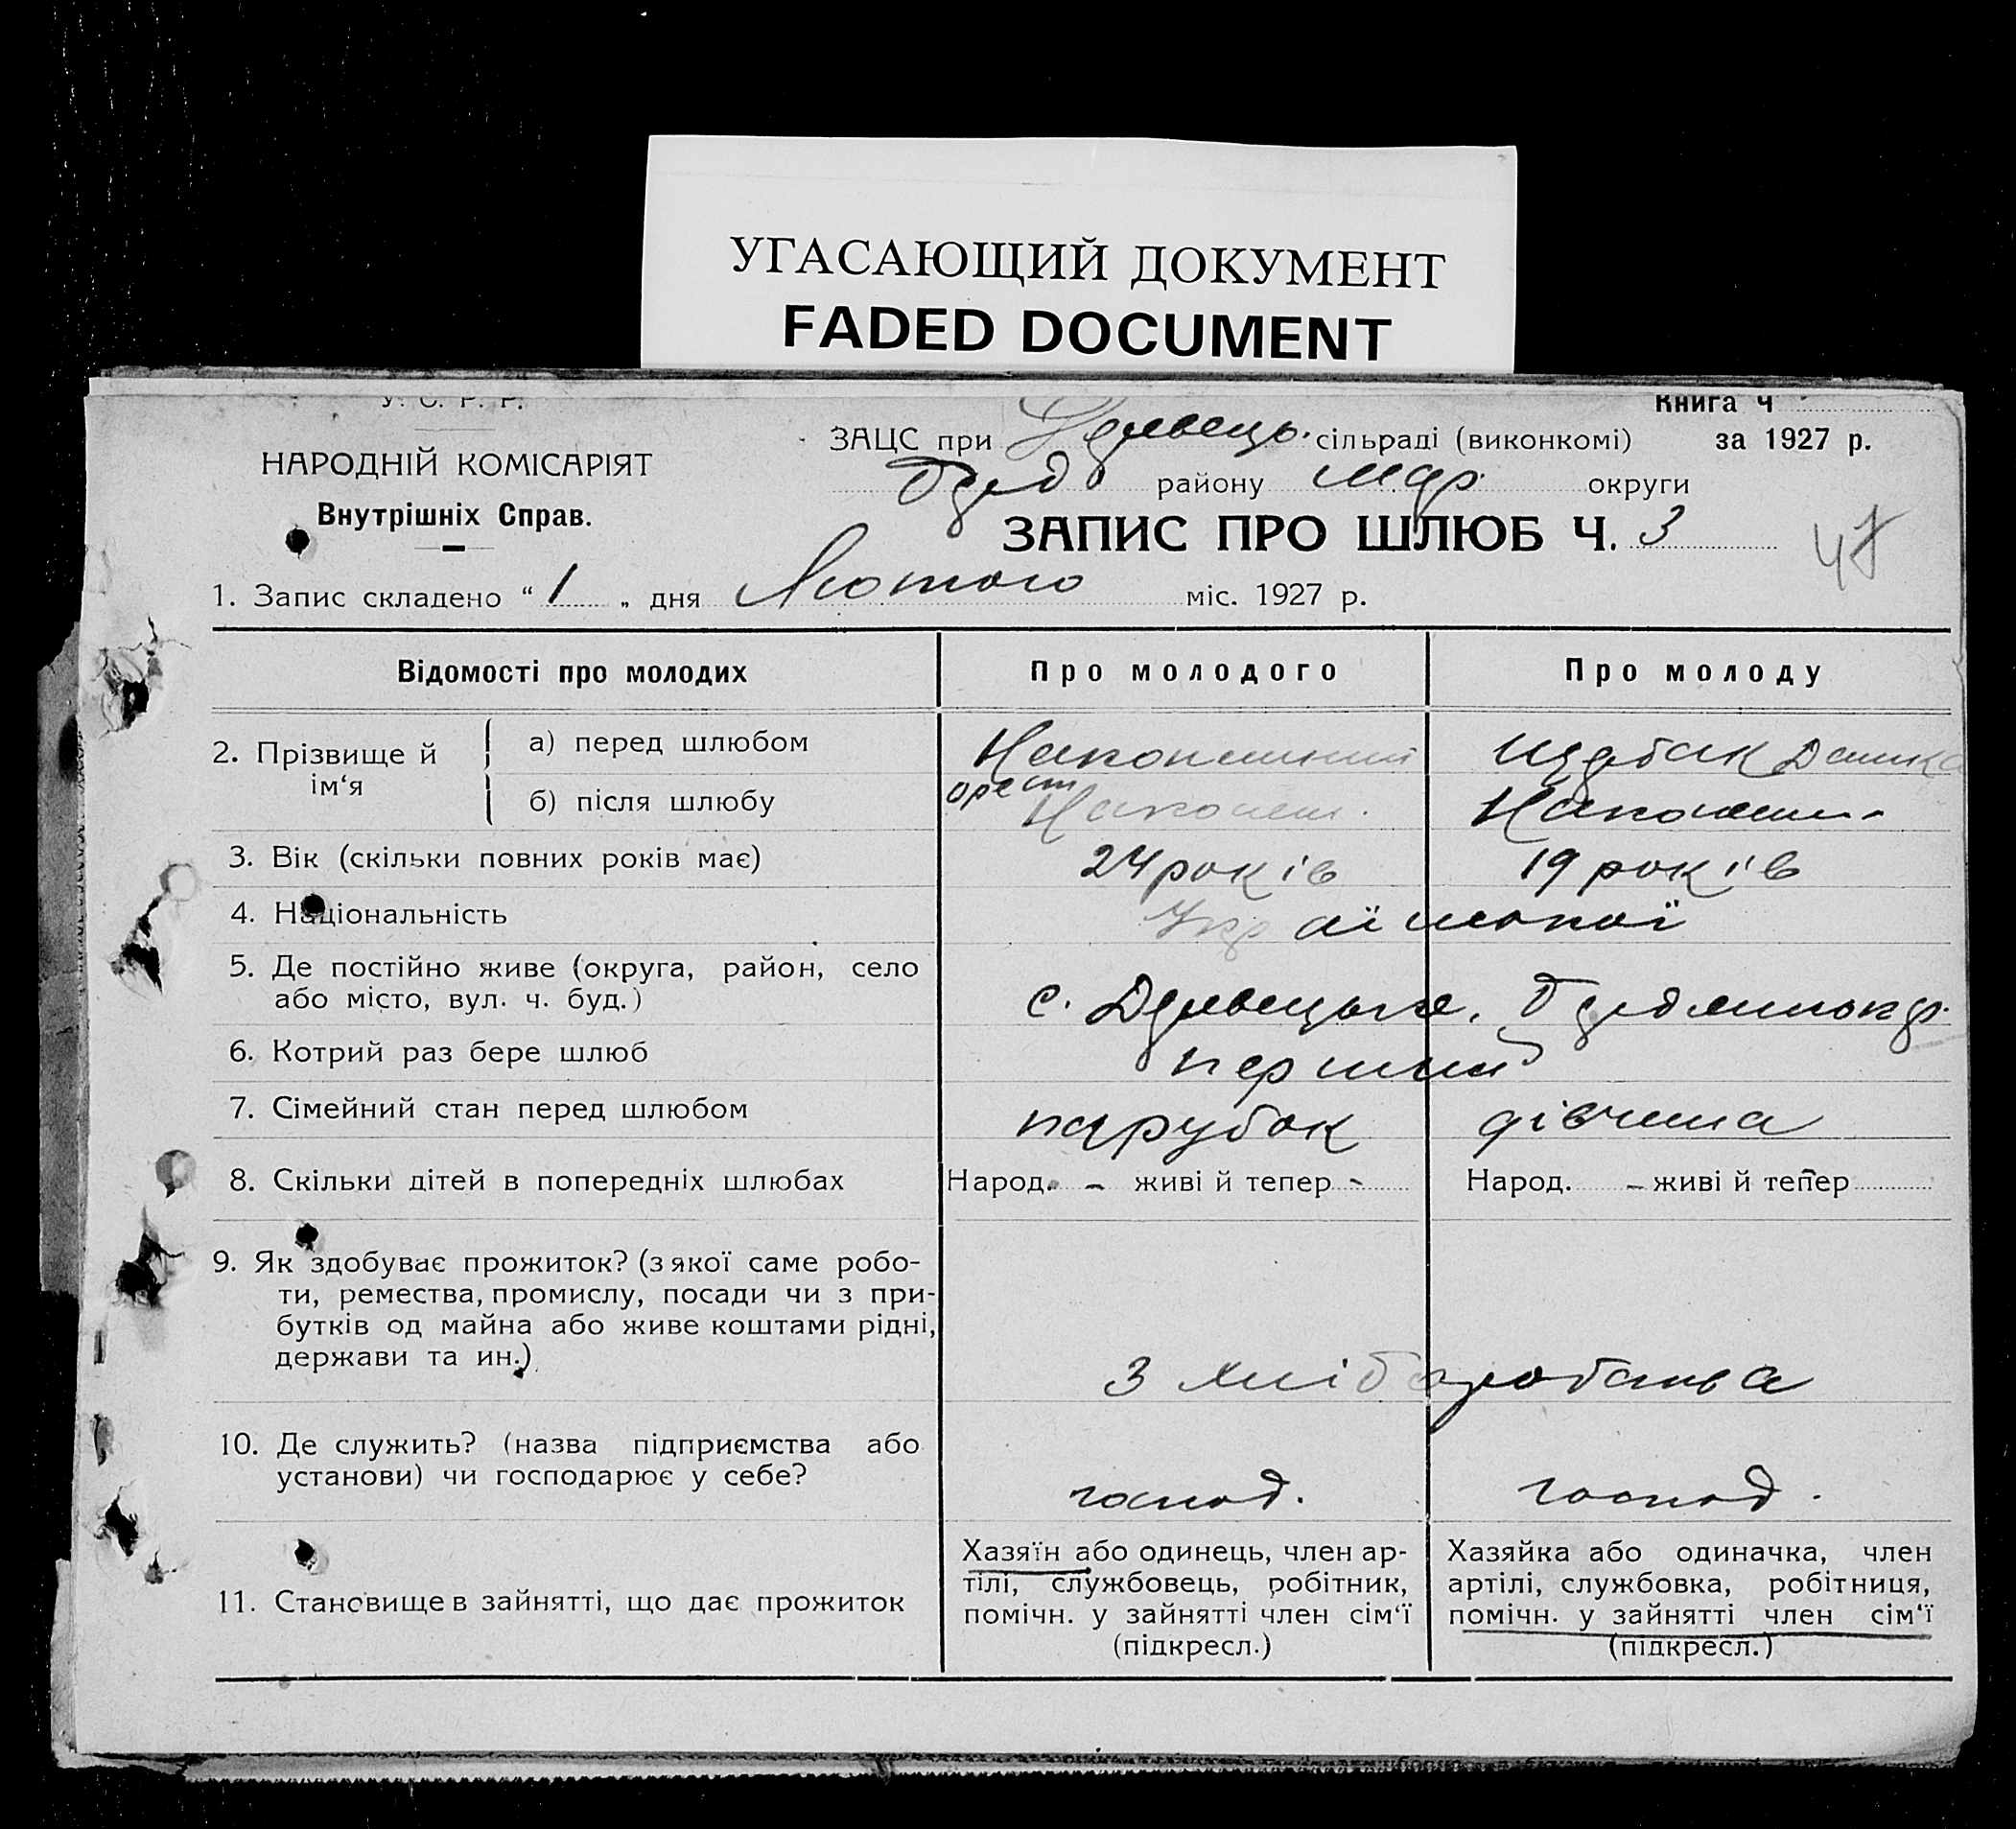 УГАСАЮЩИЙ ДОКУМЕНТ
FADED DOCUMENT
У. С. Р. Р.
Книга ч
ЗАЦС при сільраді (виконкомі) за 1927 р.
НАРОДНІЙ КОМІСАРІЯТ
району округи
Внутрішніх Справ.
ЗАПИС ПРО ШЛЮБ Ч. 3
1. Запис складено “ 1 „ дня Лютого міс. 1927 р.
Відомості про молодих Про молодого Про молоду
2. Прізвище й ім‘я
а) перед шлюбом
Орест
б) після шлюбу
3. Вік (скільки повних років має) 24 років 19 років
4. Національність
5. Де постійно живе (округа, район, село
або місто, вул. ч. буд.) с.
6. Котрий раз бере шлюб перший
7. Сімейний стан перед шлюбом парубок дівчина
8. Скільки дітей в попередніх шлюбах Народ. - живі й тепер - Народ. - живі й тепер -
9. Як здобуває прожиток? (з якої саме робо-
ти, ремества, промислу, посади чи з при-
бутків од майна або живе коштами рідні,
держави та ин.)
З хліборобства
10. Де служить? (назва підприємства або
установи) чи господарює у себе?
господ. господ.
11. Становище в зайнятті, що дає прожиток
Хазяїн або одинець, член ар-
тілі, службовець, робітник,
помічн. у зайнятті член сім‘ї
(підкресл.)
Хазяйка або одиначка, член
артілі, службовка, робітниця,
помічн. у зайнятті член сім‘ї
(підкресл.)